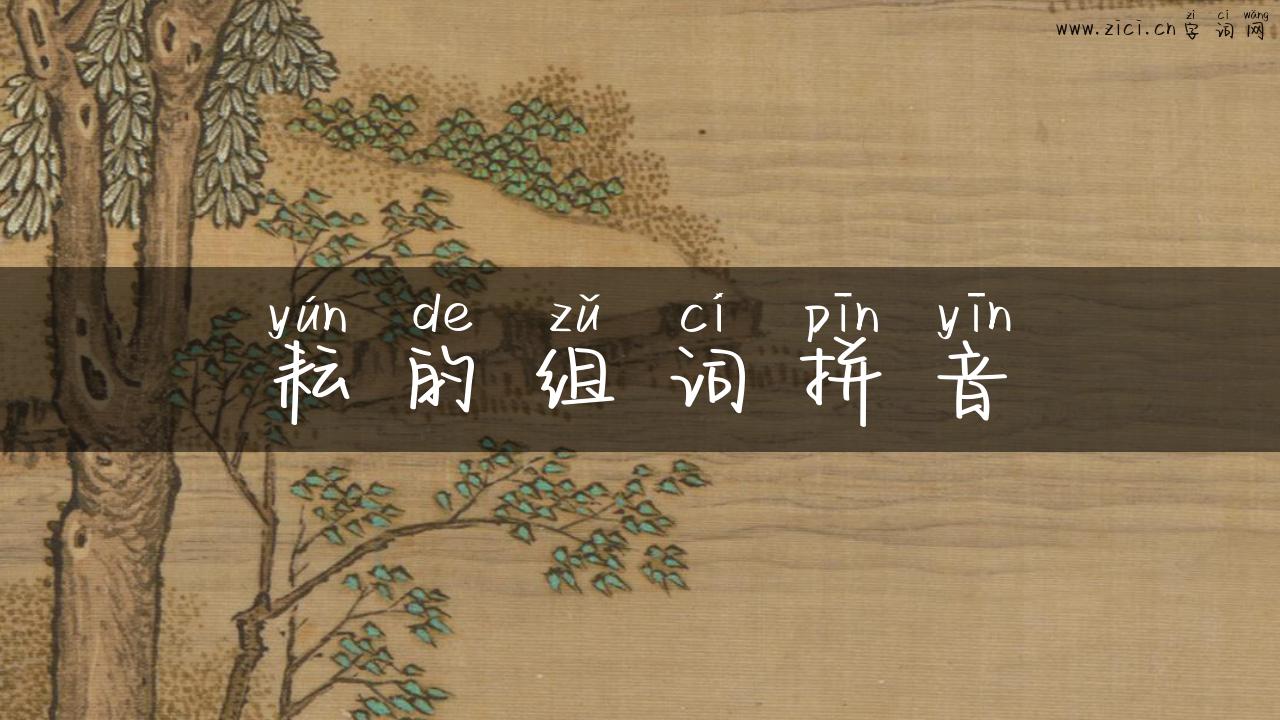 zì cí wǎng
www.zici.cn 字词网
yún de zǔ cí pīn yīn
耘的组词拼音